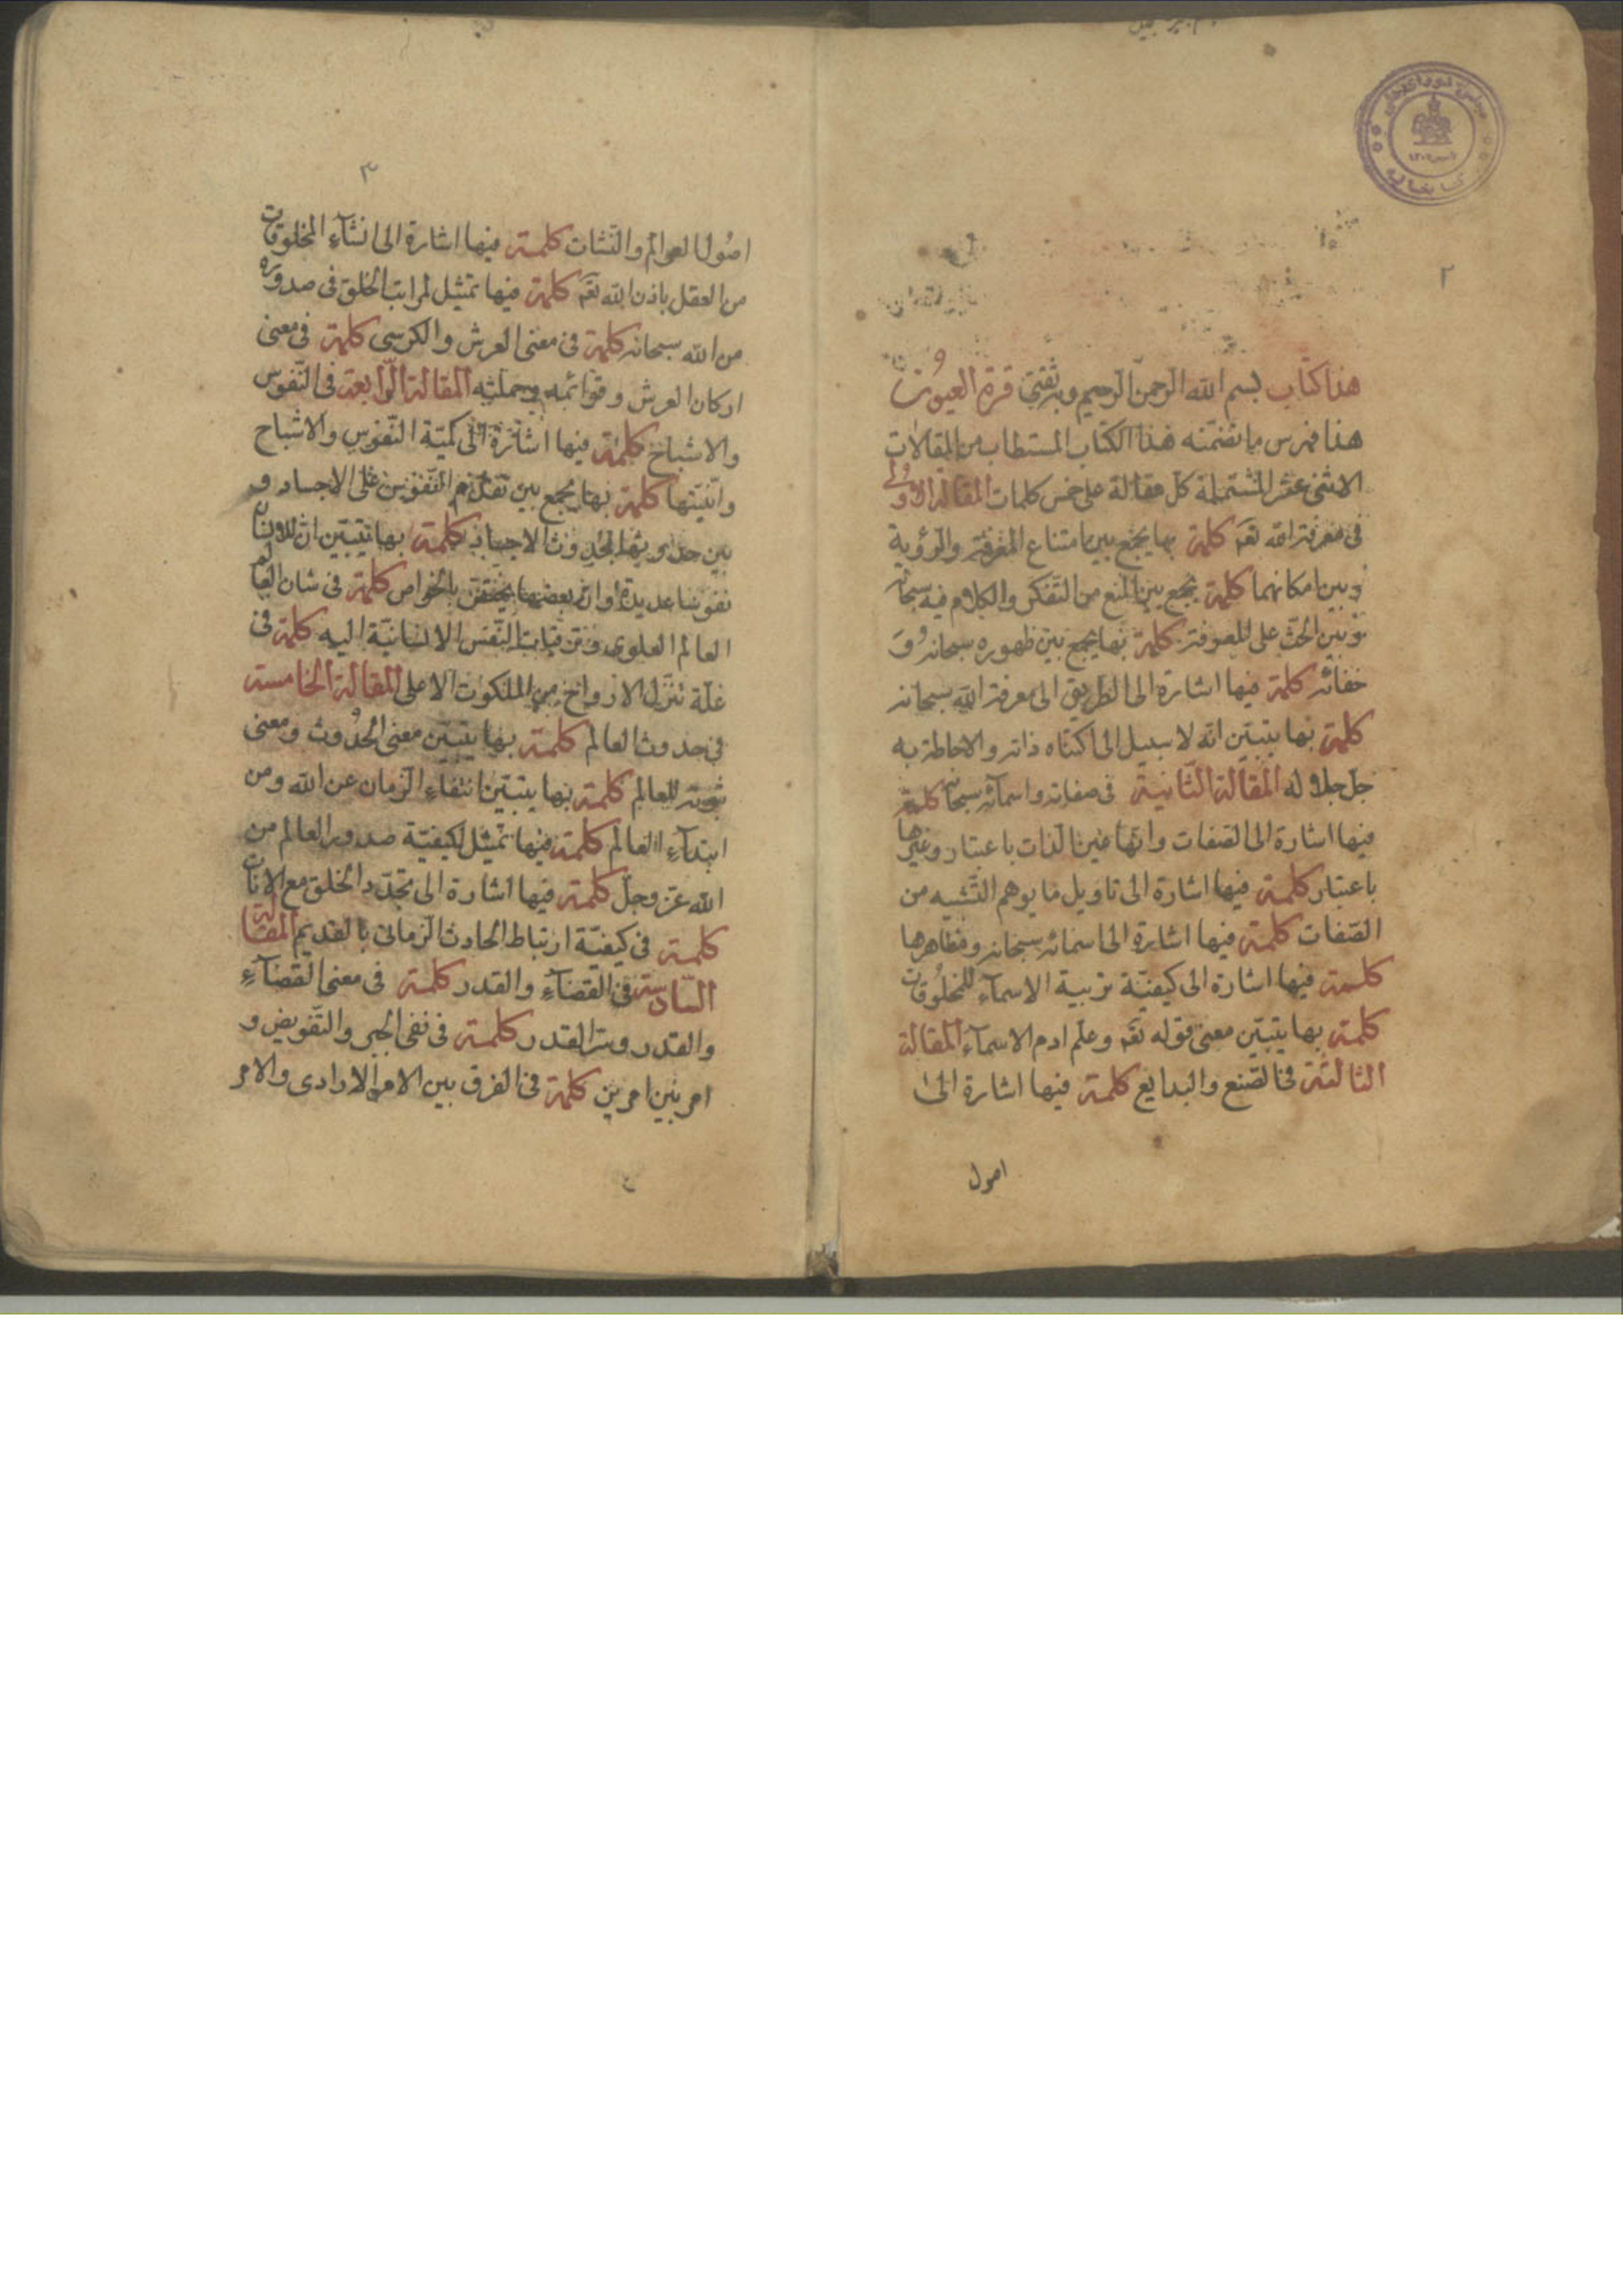 ٢
هذا كتاب بسم الله الرحمن الرحيم وبه ثقتى قرة العيون
هذا فهرس ما تضمنه هذا الكتاب المستطاب من المقالات
الاثنى عشر المشتملة كل مقالة على خمس كلمات المقالة الاولى
فى معرفة الله تعم كلمة بها يجمع بين امتناع المعرفة والرؤية
وبين امكانهما كلمة يجمع بين المنع من التفكر والكلام فيه سبحانه
وبين الحث على المعرفة كلمة بها يجمع بين ظهوره سبحانه و
خفائه كلمة فيها اشارة الى الطريق الى معرفة الله سبحانه
كلمة بها يتبين انه لا سبيل الى اكتناه ذاته والاحاطة به
جل جلاله المقالة الثانية فى صفاته واسمآئه سبحانه كلمة
فيها اشارة الى الصفات وانها عين الذات باعتبار وغيرها
باعتبار كلمة فيها اشارة الى تاويل ما يوهم التشبيه من
الصفات كلمة فيها اشارة الى اسمائه سبحانه ومظاهرها
كلمة فيها اشارة الى كيفية تربية الاسمآء للمخلوقات
كلمة بها يتبين معنى قوله تعم وعلم ادم الاسمآء المقالة
الثالثة فى الصنع والبدايع كلمة فيها اشارة الى
اصول
٣
اصول العوالم والنشات كلمة فيها اشارة الى انشآء المخلوقات
من العقل باذن الله تعم كلمة فيها تمثيل لمراتب الخلق فى صدوره
من الله سبحانه كلمة فى معنى العرش والكرسى كلمة فى معنى
اركان العرش وقوائمه وحملته المقالة الرابعة فى النفوس
والاشباح كلمة فيها اشارة الى كمية النفوس والاشباح
وانيتها كلمة بها يجمع بين تقدم النفوس على الاجساد و
بين حدوثها بحدوث الاجساد كلمة بها يتبين ان للانسان
نفوسا عديدة وان بعضها يختص بالخواص كلمة فى شان العالم
العالم العلوى وترقيات النفس الانسانية اليه كلمة فى
علة تنزل الارواح من الملكوت الاعلى المقالة الخامسة
فى حدوث العالم كلمة بها يتبين معنى الحدوث ومعنى
ثبوته للعالم كلمة بها يتبين انتفاء الزمان عن الله ومن
ابتدآء العالم كلمة فيها تمثيل لكيفية صدور العالم من
الله عز وجل كلمة فيها اشارة الى تجدد الخلق مع الانات
كلمة فى كيفية ارتباط الحادث الزمانى بالقديم المقالة
السادسة فى القضآء والقدر كلمة فى معنى القضآء
والقدر وسر القدر كلمة فى نفى الجبر والتفويض و
امر بين امرين كلمة فى الفرق بين الامر الارادى والامر